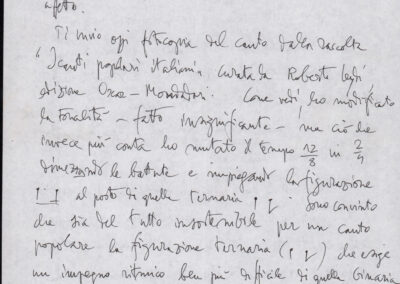 affetto.
Ti invio oggi fotocopia del canto dalla raccolta
"I canti popolari italiani" curata da Roberto Leydi
edizione Oscar - Mondadori. Come vedi ho modificato
la tonalità - fatto insignificante - ma ciò che
invece più conta ho mutato il tempo 12/8 in 2/4
dimezzando le battute e impiegando la figurazione
al posto di quella ternaria. Sono convinto
che sia del tutto insostenibile per un canto
popolare la figurazione ternaria ( ) che esige
un impegno ritmico ben più difficile di quella binaria